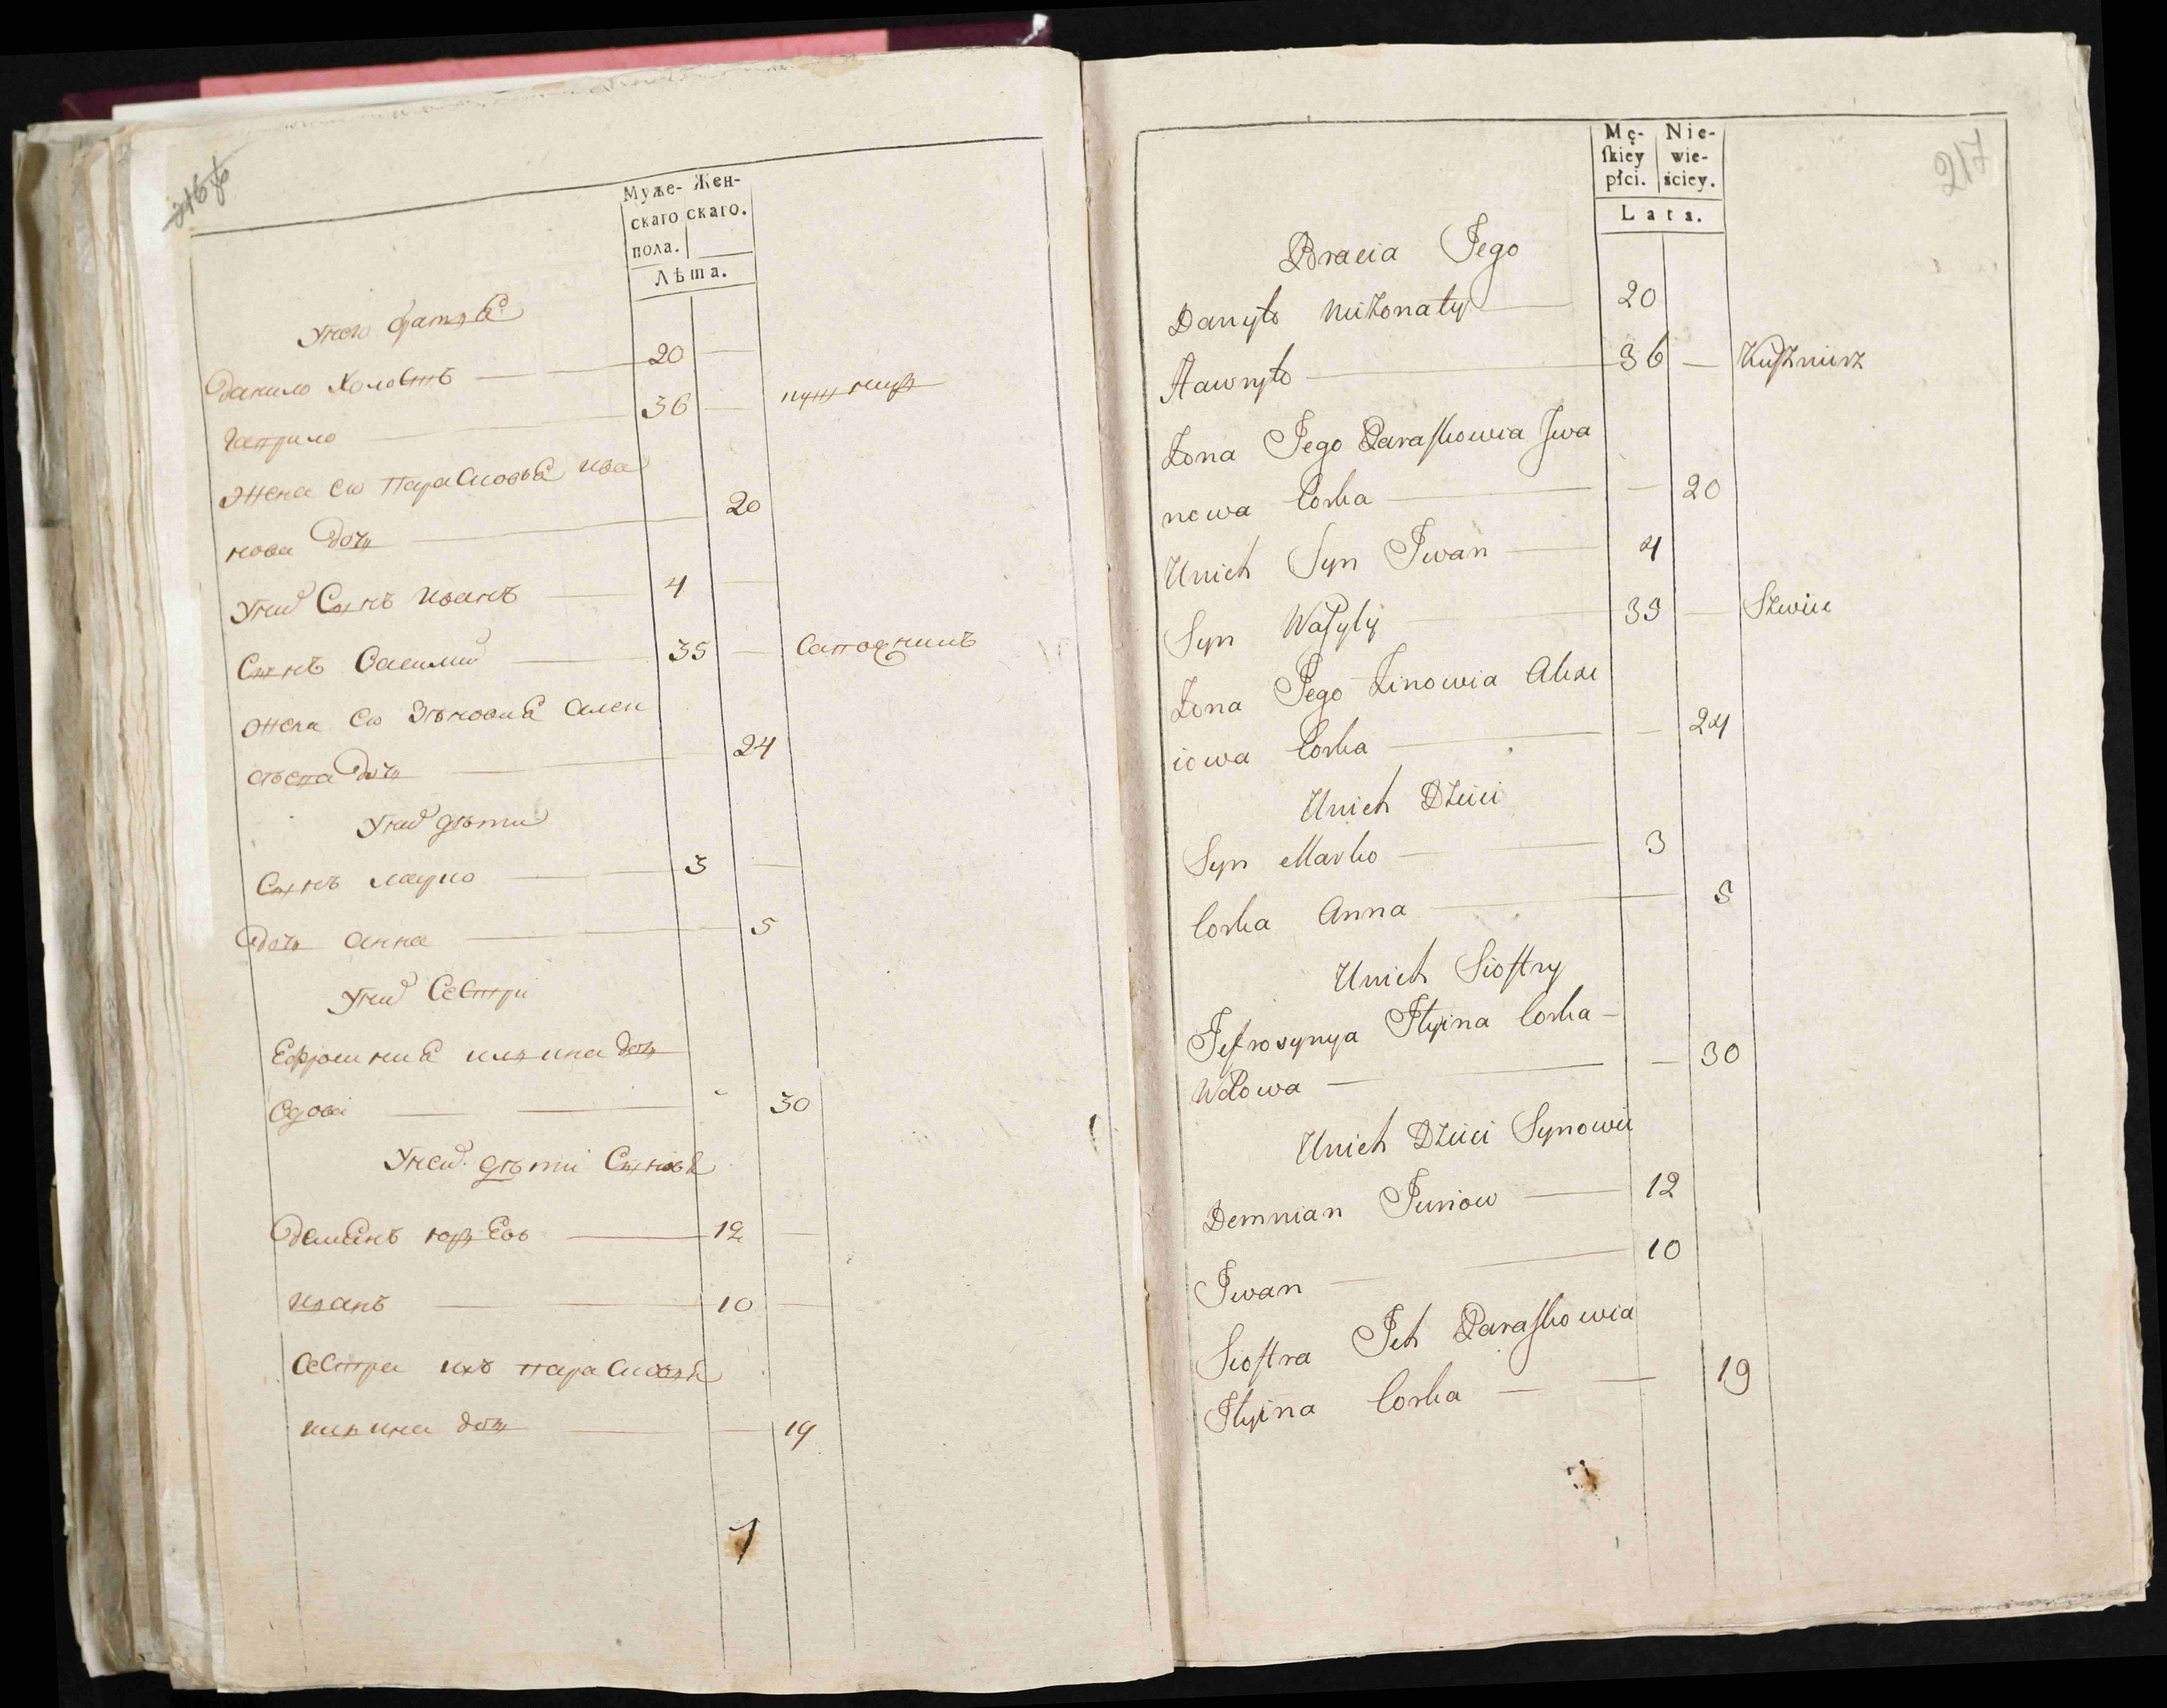 Муже- Жен-
скаго скаго.
пола.
Лѣта.
У него братья
Данило Холостъ 20
Гаврило 36
Жена его Парасковья Ива
нова дочь 20
У них Сынъ Иванъ 4
Сынъ Василий 35 Сапожникъ
Жена его Зѣновия Алек
сѣева дочь 24
У них дѣти
Сынъ Марко 3
Дочь Анна 5
У них Сестри
Ефросиния Ильина дочь
вдова 30
У ней дѣти Сыновья
Демянъ Юрьевъ 12
Иванъ 10
Сестра ихъ Парасковья
Ильина дочь 19
217
Mę- Nie-
ſkiey wie-
płci. ściey.
Lata.
Bracia Jego
Danyło Niżonaty 20
Hawryło 36 Kuſznierz
Zona Jego Paraſkowia Jwa
nowa Corka 20
Unich Syn Jwan 4
Syn Waſyly 35 Szwiec
Zona Jego Zinowia Alexi
iowa Corka 24
Unich Dzieci
Syn Marko 3
Corka Anna 5
Unich Sioſtry
Jefrosynya Jlyina Corka
Wdowa 30
Unich Dzieci Synowie
Demnian Juriow 12
Jwan 10
Sioſtra Jch Paraſkowia
Jlyina Corka 19